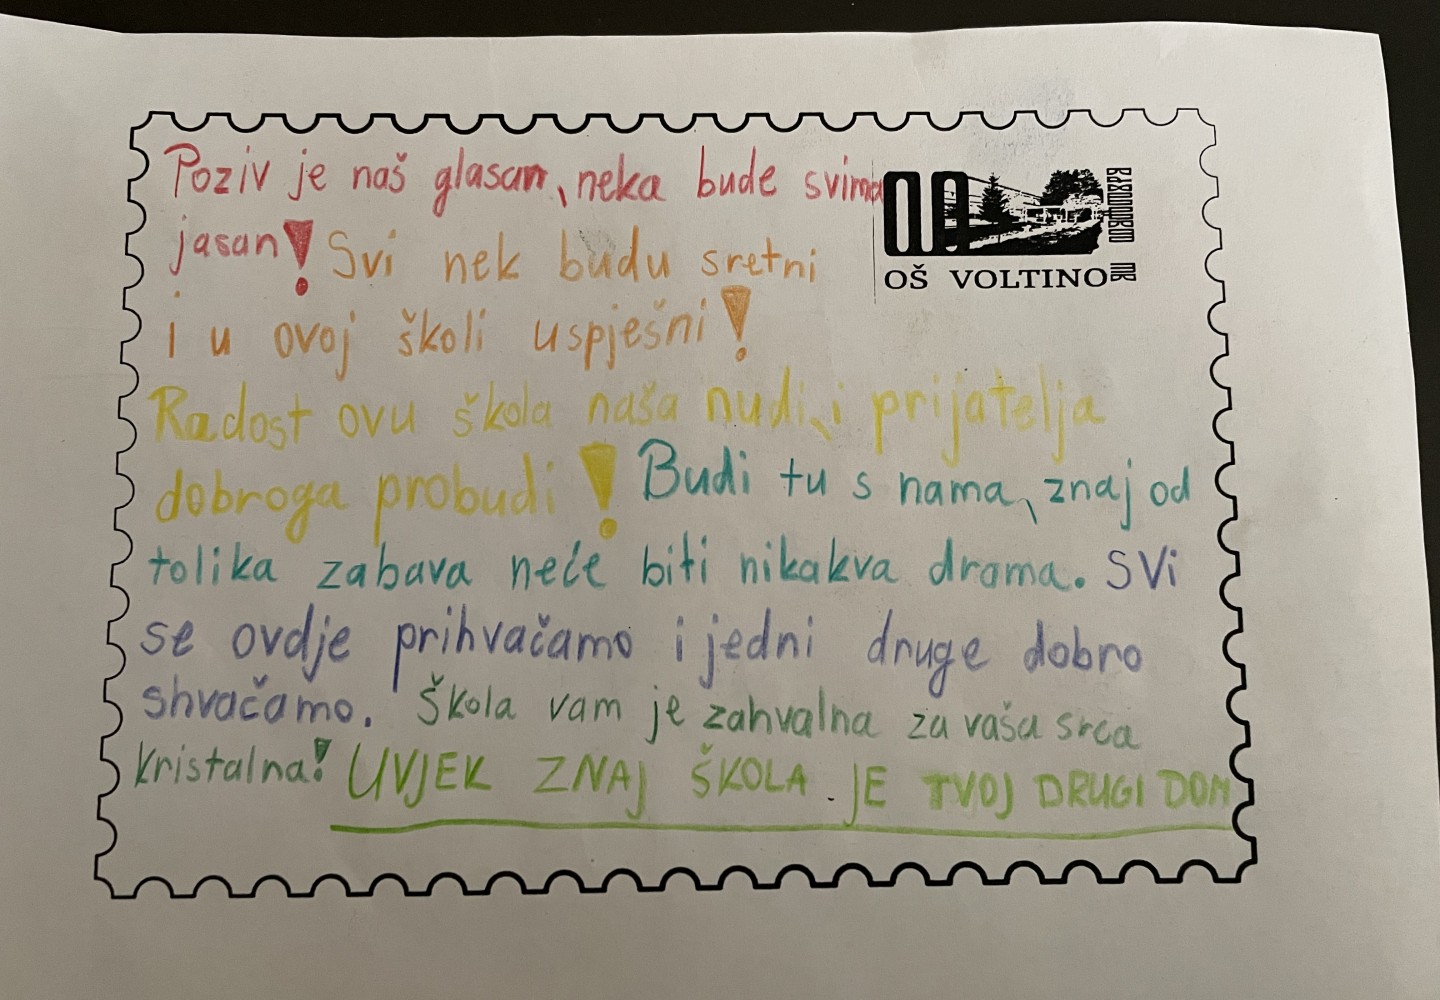 Poziv je naš glasan, neka bude svima
jasan! Svi nek budu sretni
OŠ VOLTINO
i u ovoj školi uspješni!
Radost ovu škola naša nudi, i prijatelja
dobroga probudi! Budi tu s nama, znaj od
tolika zabava neće biti nikakva drama. SVi
se ovdje prihvačamo i jedni druge dobro
shvačamo. Škola vam je zahvalna za vaša srca
kristalna! UVJEK ZNAJ ŠKOLA JE TVOJ DRUGI DOM